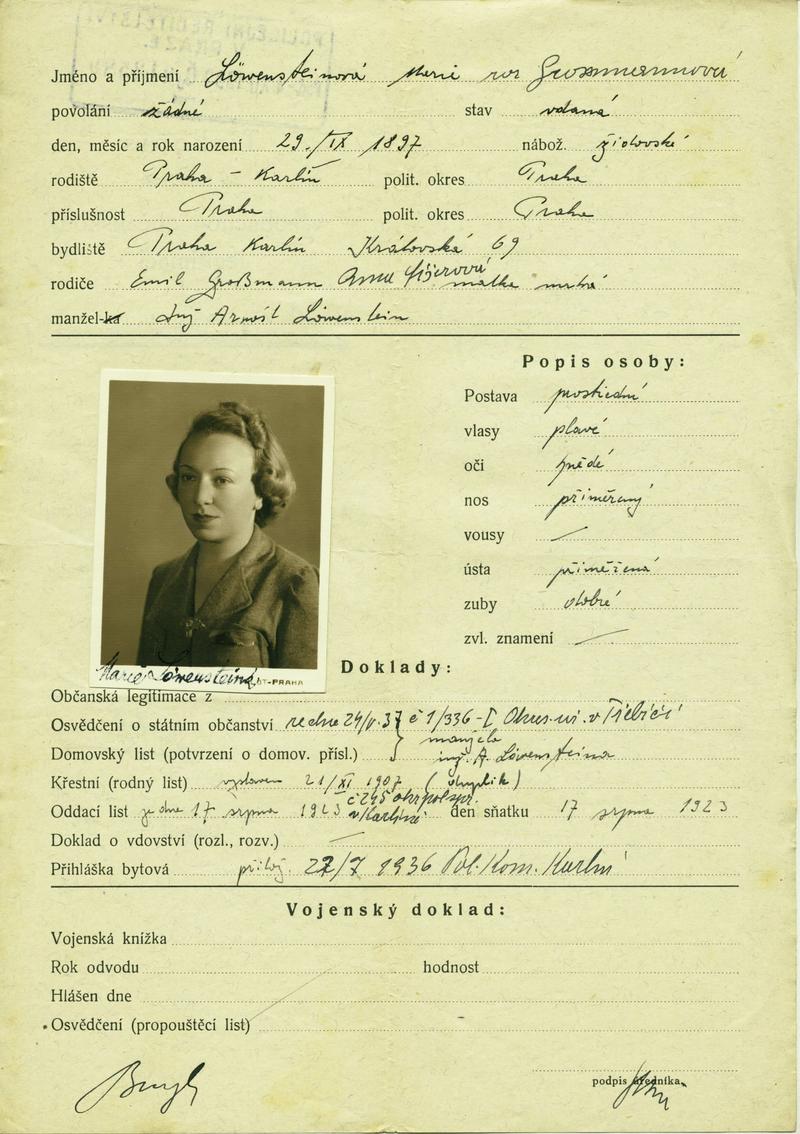 Jméno a příjmení Löwensteinová Marie roz Grossmannová
povolání žádné stav vdaná
den, měsíc a rok narození 29./IX 1897 nábož. židovské
rodiště Praha - Karlín polit. okres Praha
příslušnost Praha polit. okres Praha
bydliště Praha Karlín Královská 69
rodiče Emil Großmann Anna matka mrtvá
manžel-ka Ing Arnošt Löwenstein
Popis osoby:
Postava prostřední
vlasy plavé
oči hnědé
nos přiměřený
vousy —
ústa přiměřená
zuby dobré
zvl. znamení —
Marie Löwensteinová
-PRAHA
Doklady:
Občanská legitimace z
Osvědčení o státním občanství ze dne 24/V.37 č 1/336-I Okres. úř. v Třebíči
Domovský list (potvrzení o domov. přísl.) manžela ing. A. Löwensteina
Křestní (rodný list) vystaven 21/XI 1907 (duplik)
Oddací list ze dne 17 srpna 1923 č 245 v Karlíně den sňatku 17 srpna 1923
Doklad o vdovství (rozl., rozv.) —
Přihláška bytová 27/7 1936 Pol. Kom. Karlín
Vojenský doklad:
Vojenská knížka
Rok odvodu hodnost
Hlášen dne
Osvědčení (propouštěcí list)
podpis úředníka.